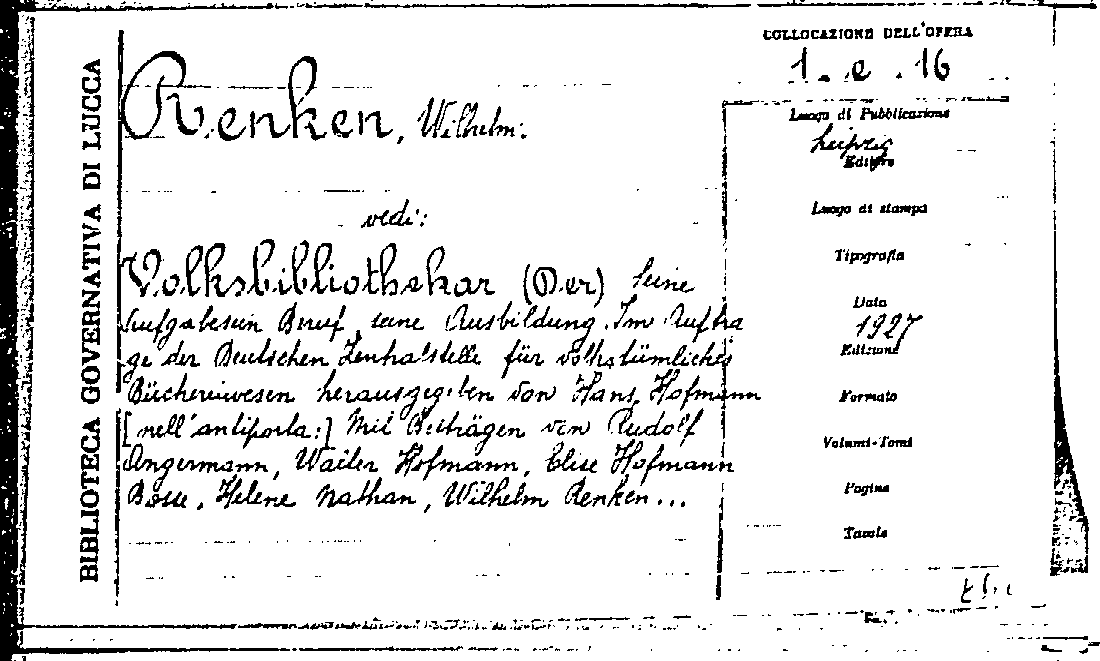 BIBLIOTECA GOVERNATIVA DI LUCCA
COLLOCAZIONE DELL'OPERA
1. e. 16
Renken, Wilhelm:
vedi:
Volksbibliothekar (Der) seine
Aufgabe sein Beruf, seine Ausbildung. Im Auftra
ge der Deutschen Zentralstelle für volkstümliches
Büchereiwesen herausgegeben von Hans Hofmann
[nell'antiporta:] Mit Beiträgen von Rudolf
Angermann, Walter Hofmann, Elise Hofmann
Bosse, Helene Nathan, Wilhelm Renken...
Luogo di Pubblicazione
Leipzig
Editore
Luogo di stampa
Tipografia
Data
1927
Edizione
Formato
Volumi-Tomi
Pagine
Tavole